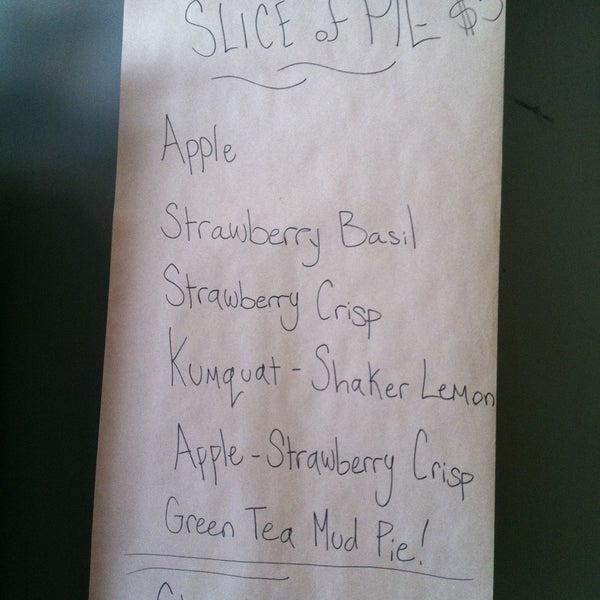 SLICE of PIE $5
Apple
Strawberry Basil
Strawberry Crisp
Kumquat - Shaker Lemon
Apple - Strawberry Crisp
Green Tea Mud Pie!